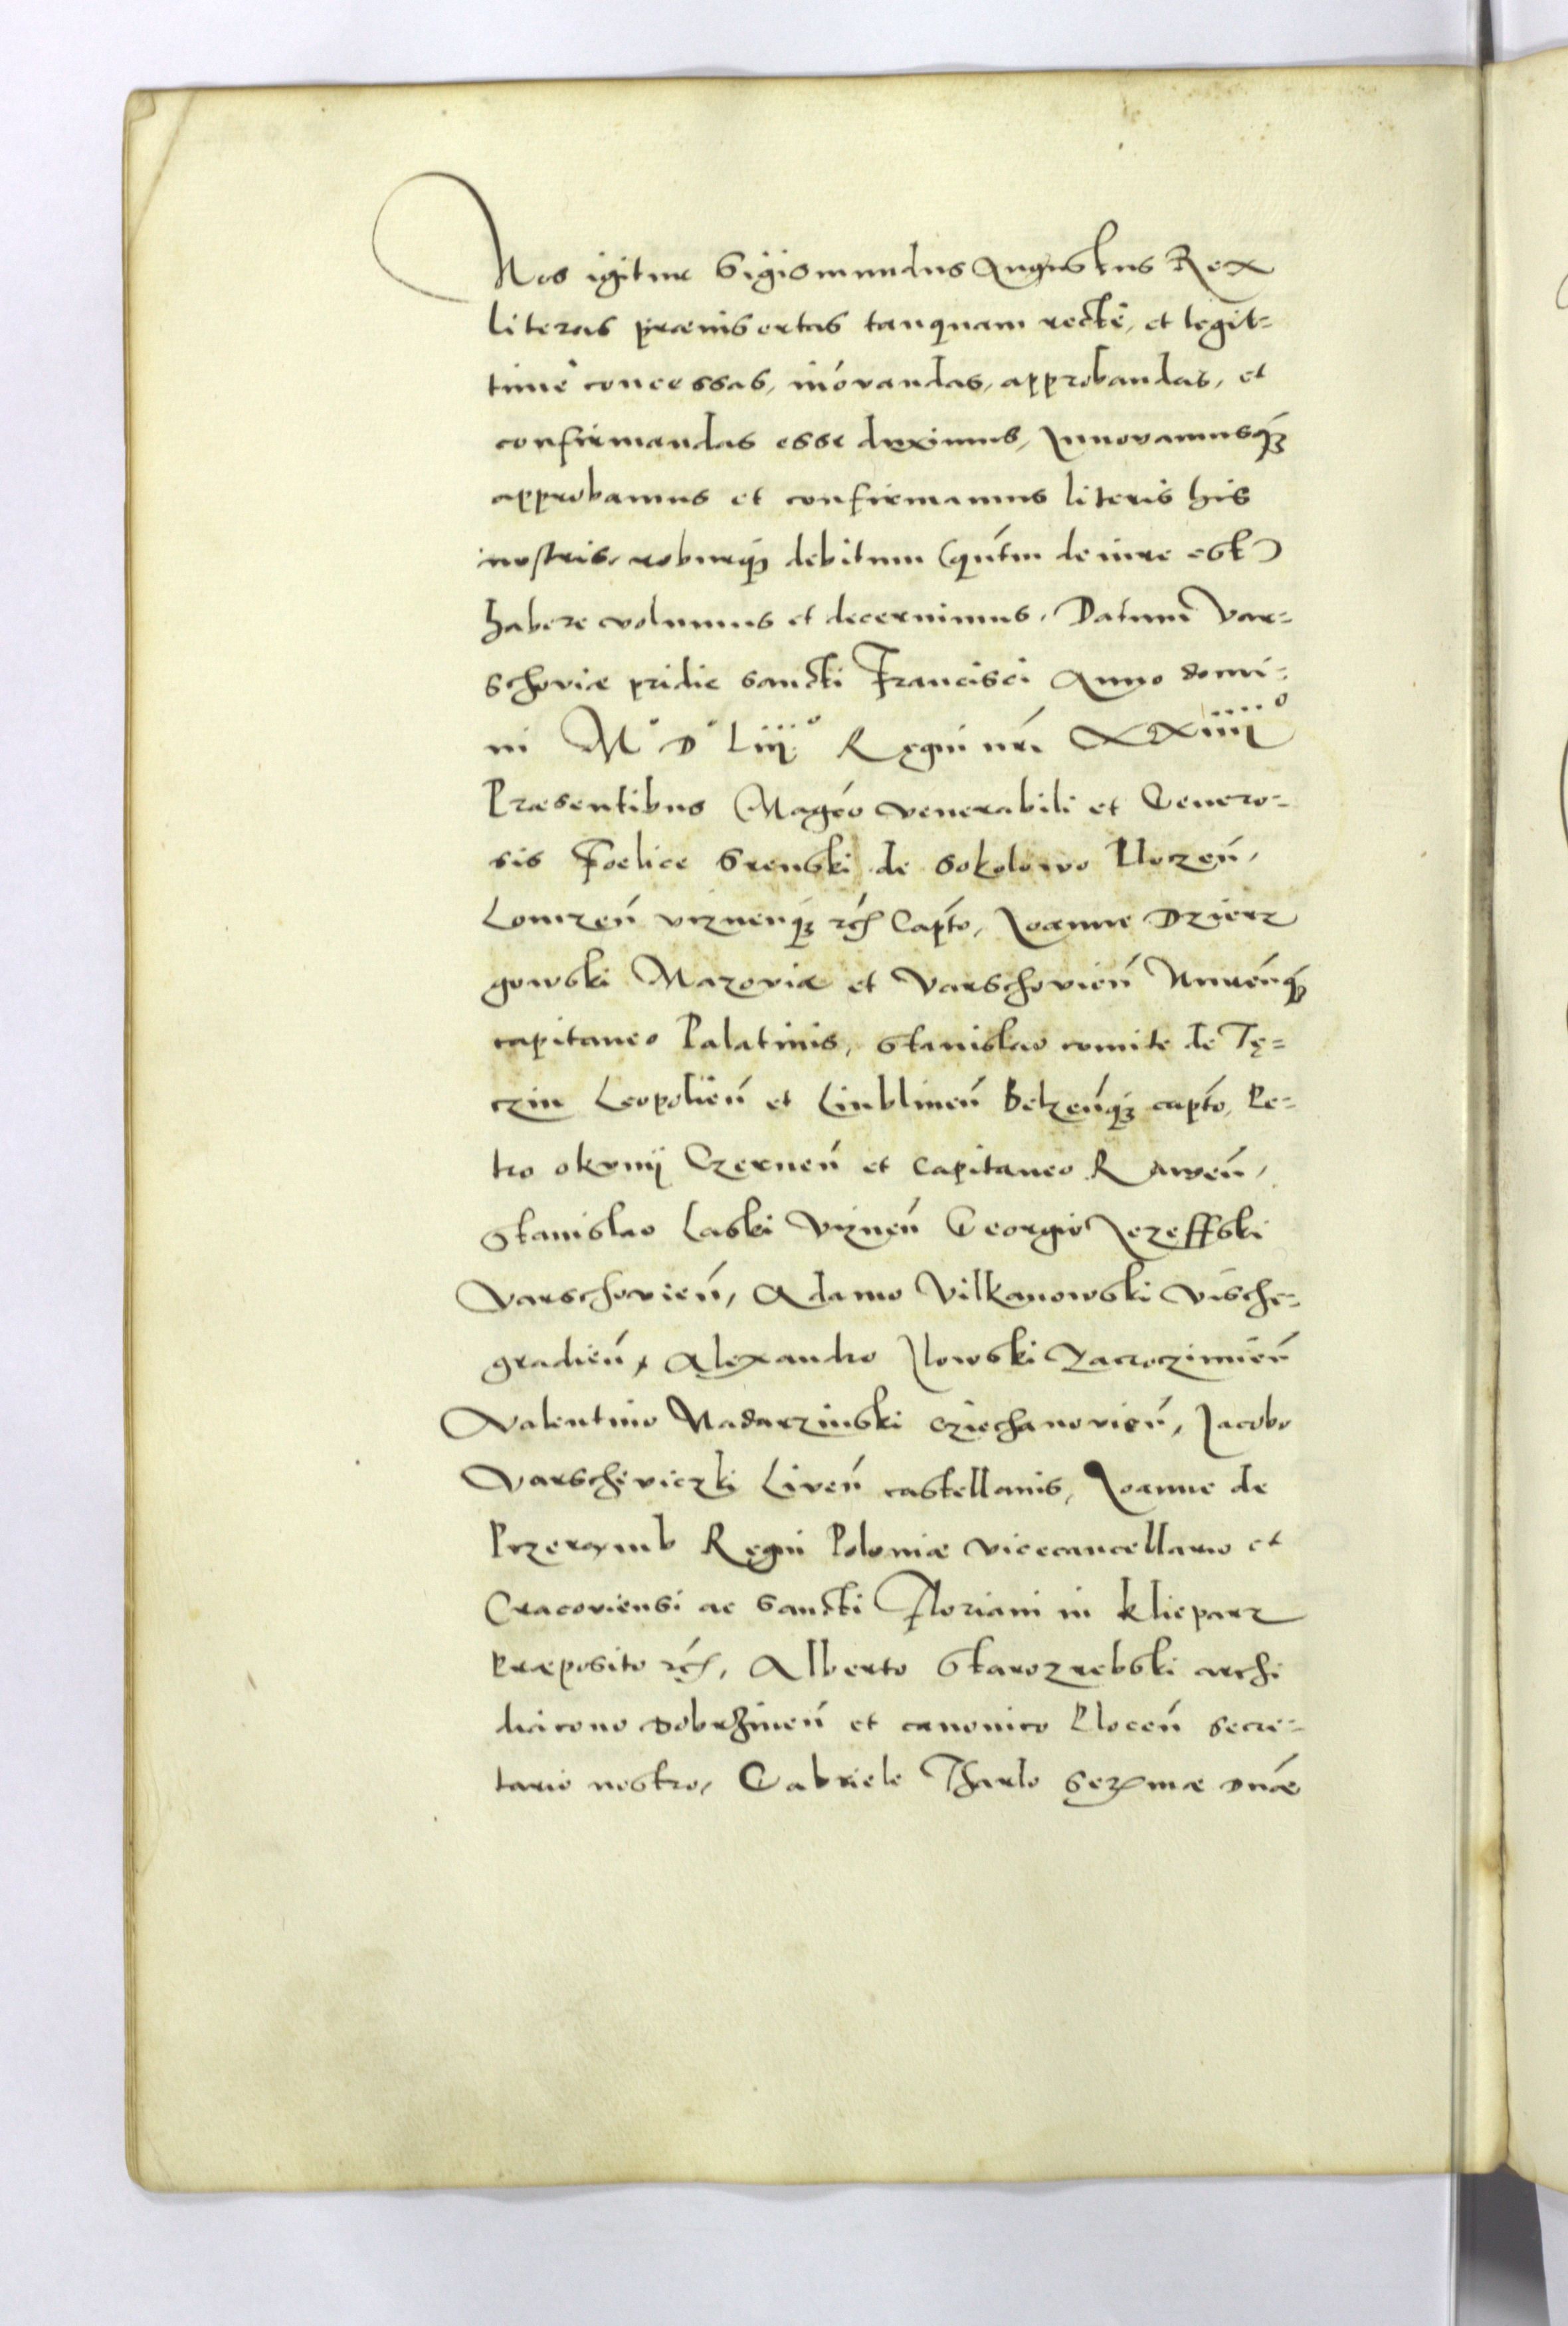 Nos igitur Sigismundus Augustus Rex
literas præinsertas tanquam rectè, et legit-
timè concessas, iñovandas, approbandas, et
confirmandas esse duximus, Innovamusq́ꝫ
approbamus et confirmamus literis his
nostris, roburq́ꝫ debitum (qútm de iure est)
habere volumus et decernimus. Datum Var-
schoviæ pridie sancti Francisci Anno domi-
ni M° D° Liii° Regni nrí XXiiii°
Præsentibus Magco venerabili et Genero-
sis Foelice Srenski de Sokolowo Ploczeñ,
Lomzeñ viznenq́ꝫ rc̃ Capto, Joanne Dzierz
gowski Mazoviæ et Varschovieñ
capitaneo Palatinis, Stanislao comite de Tę-
czin Leopolieñ et Liublineñ Belzeñq́ꝫ capto, Pe-
tro okunij Czerneñ et Capitaneo Raweñ,
Stanislao Laski Vizneñ Georgio Jezeffski
Varschovieñ, Adamo Vilkanowski Vische-
gradieñ, Alexandro Ilowski Zacroczimieñ
Valentino Nadarzinski cziechanovieñ, Jacobo
Varscheviczki Liveñ castellanis, Joanne de
Przeręmb Regni Poloniæ vicecancellario et
Cracoviensi ac sancti Floriani in Klieparz
Præposito rc̃, Alberto Starozrebski archi
diacono Dobrzineñ et canonico Ploceñ secre-
tario nostro, Gabriele Tharlo Serᵐæ Dnæ